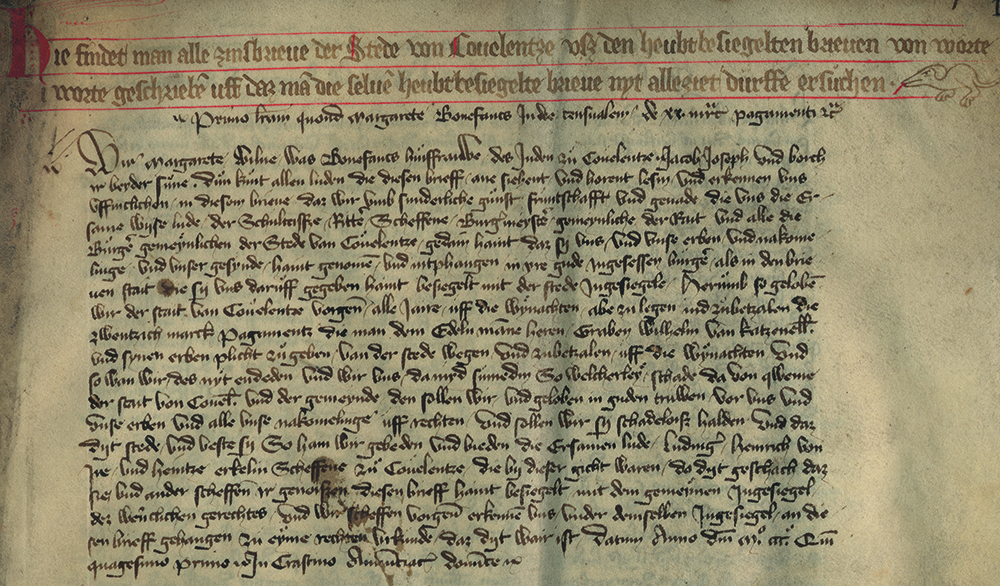 Hie findet man alle zinsbrieue der Stede von Couelentze vsz den heubtbesiegelten brieuen von worte
i worte geschriebē uff daz mā die seluē heubtbesiegelte brieue nyt alleziet durffe ersuchen
Primo lrām quond Margarete Bonefancs Judee censualem de xx mrc pagamenti
Wir Margarete wilne was Bonefancs huisfrauwe des Juden zü Couelentze Jacob Joseph vnd
yr beider süne dün kunt allen luden die diesen brieff ane siehent vnd horent lesin vnd erkennen vns
uffinlichen in diesem brieue daz wir vmb sunderliche gunst fruntschafft vnd genade die vns die Er-
same wyse lude der Schulteisse Rittē Scheffene Burgmeystē gemeynliche der Rait vnd alle die
Burgē gemeynlichen der Stede van Couelentze gedain haint daz sy vns vnd vnse erben vnd nakome
linge vnd vnser gesynde haint genomē vnd intphangen in yre gude Ingesessen burgē als in den brie
uen stait die sy vns daruff gegeben haint besiegelt mit der stede Ingesiegele Herumb so gelobē
wir der stait van Couelentze vorgen alle Jare uff die wynachten abe zu legen vnd zubetzalen die
zwentzich marck pagamentz die man dem Edeln māne heren Grauen Wilhelm van Katzenell
vnd synen erben plicht zu geben van der stede wegen vnd zubetalen uff die wynachten vnd
so wan wir des nyt endeden vnd wir vns da sumedin So welcherley schade da von qweme
der stait von Couel vnd der gemeynde den sollen wir vnd geloben in guden truwen vor vns vnd
vnse erben vnd alle vnse nakomelinge uff rechten vnd sollen wir sy schadelois halden vnd daz
dyt stede vnd veste sy So hain wir gebeden vnd bieden die Ersamen lude Luding Henrich von
Jre vnd Heintze erkelin Scheffene zu Couelentze die by dieser gicht waren do dyt geschach daz
sie vnd ander scheffen yr genoissen diesen brieff haint besiegelt mit dem gemeynen Ingesiegel
dez werlichen gerechtes vnd wir scheffen vorgen erkenne vns vnder demselben Ingesiegel an die
sen brieff gehangen zu eyme rechten vrkunde daz dyt wair ist datum Anno dm mo ccco Quin
quagesimo primo in Crastino Annuntiac dominice